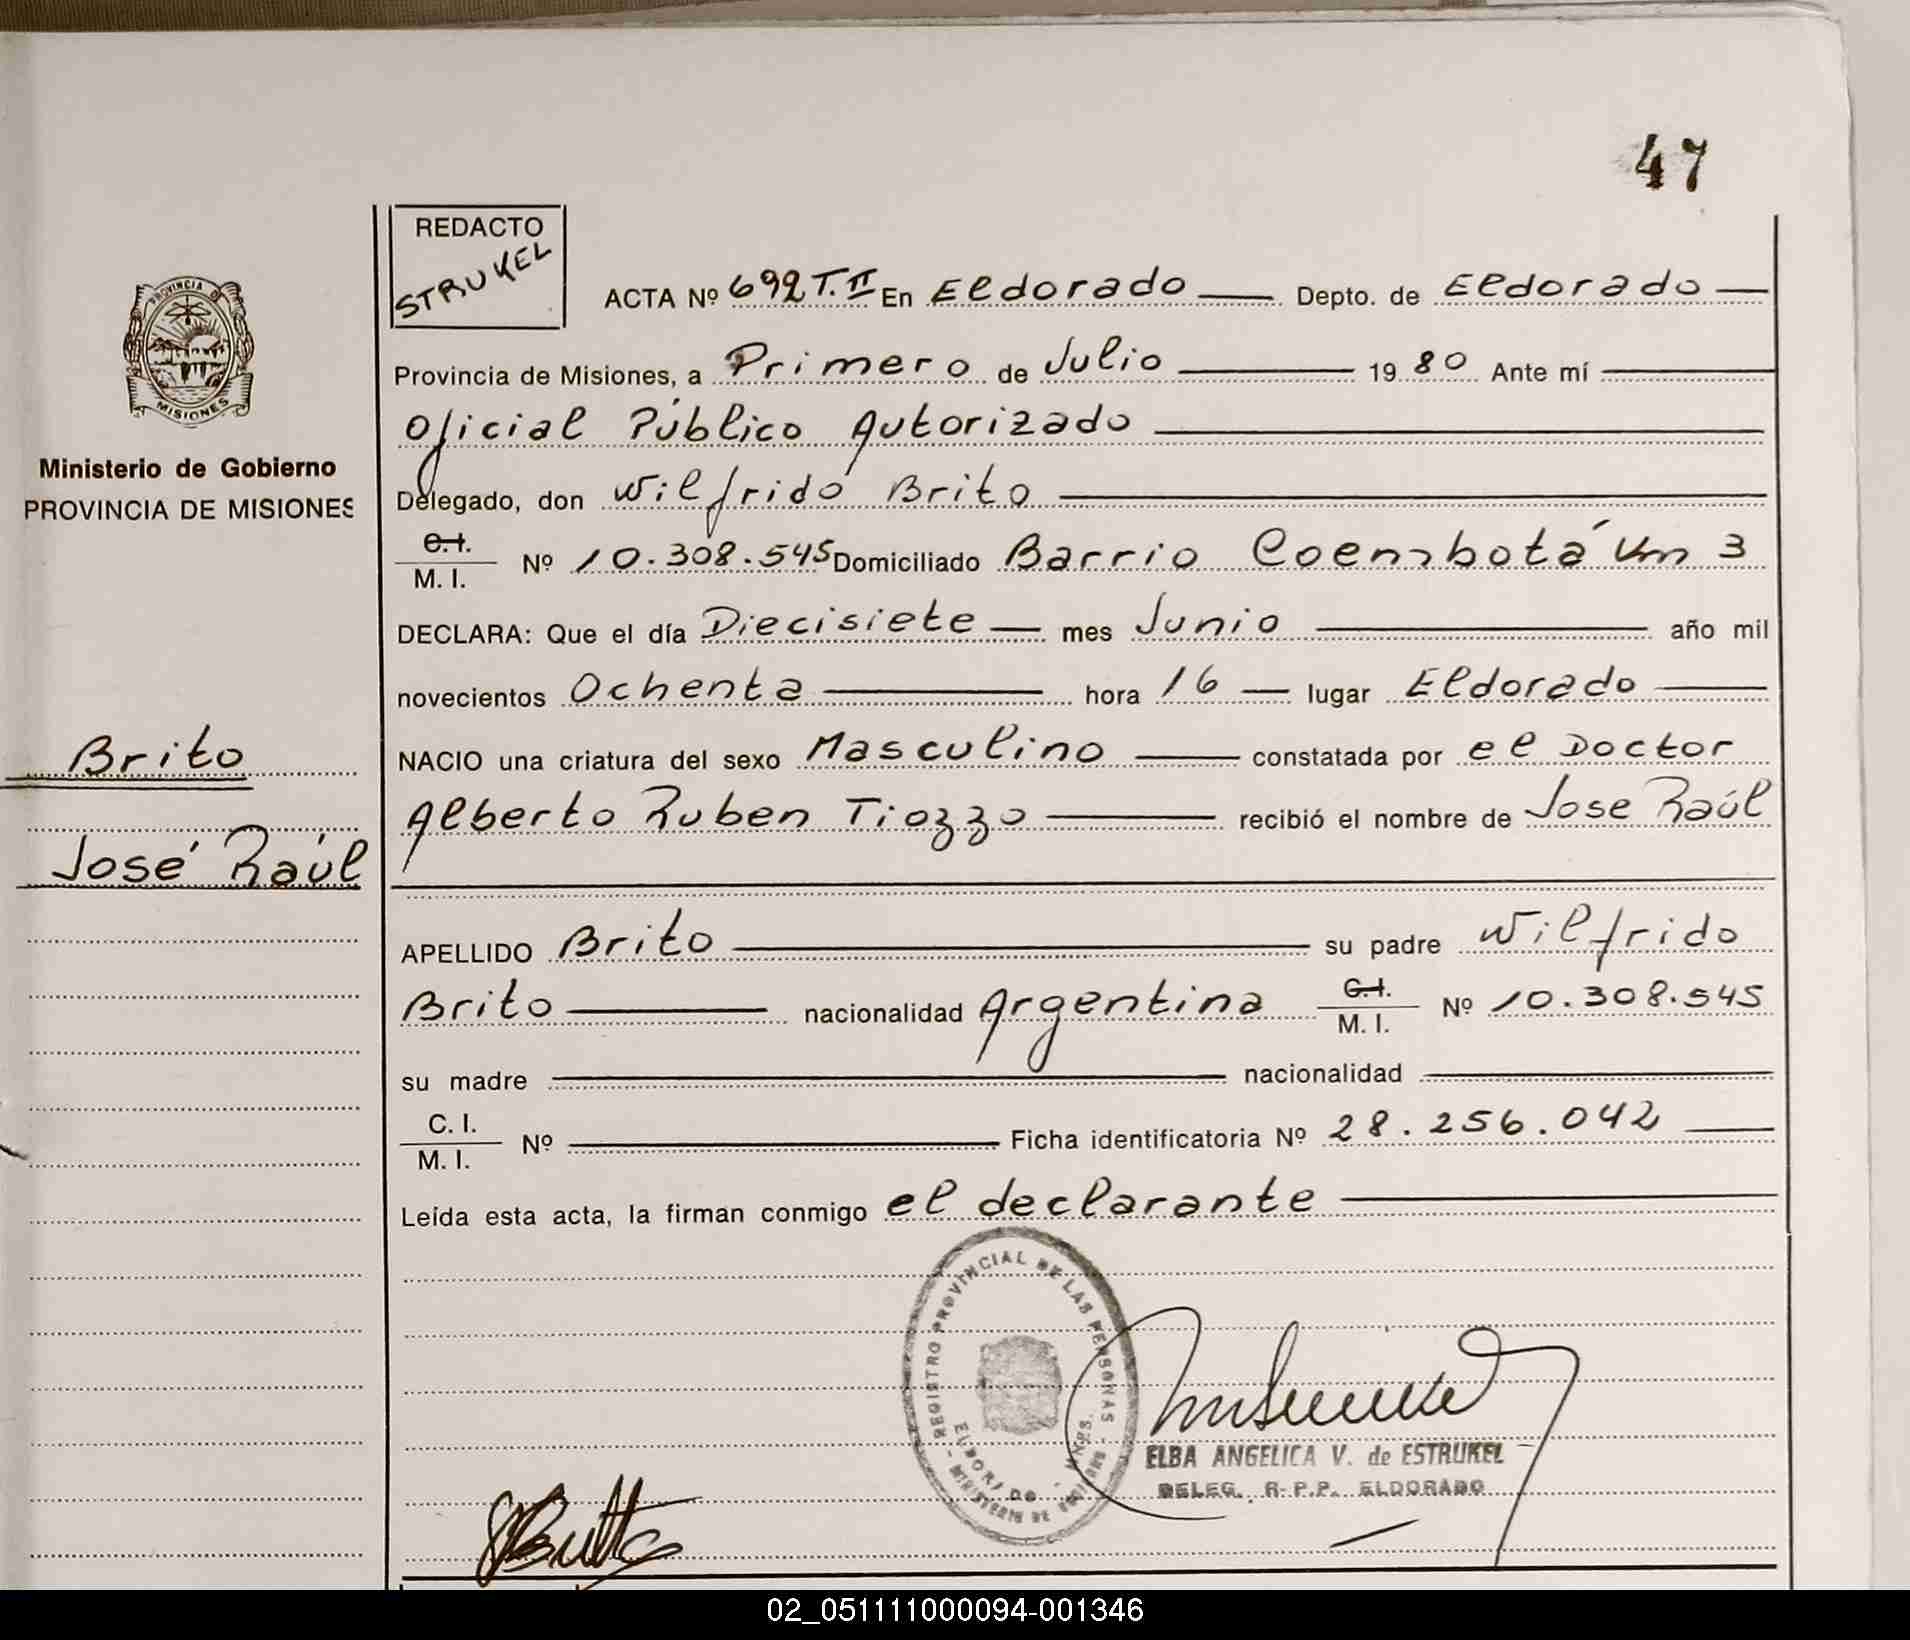 47
REDACTO
STRUKEL
ACTA Nº 692 T.II En Eldorado Depto. de Eldorado
Provincia de Misiones, a Primero de Julio 19 80 Ante mí
Oficial Público Autorizado
PROVINCIA DE
MISIONES
Ministerio de Gobierno
PROVINCIA DE MISIONES
Delegado, don Wilfrido Brito
C.I.
M.I. Nº 10.308.545 Domiciliado Barrio Coembotá Km 3
DECLARA: Que el día Diecisiete mes Junio año mil
novecientos Ochenta hora 16 lugar Eldorado
Brito
NACIO una criatura del sexo Masculino constatada por el Doctor
Alberto Ruben Tiozzo recibió el nombre de Jose Raúl
José Raúl
APELLIDO Brito su padre Wilfrido
Brito nacionalidad Argentina C.I. M.I. Nº 10.308.545
su madre nacionalidad
C.I.
M.I. Nº Ficha identificatoria Nº 28.256.042
Leída esta acta, la firman conmigo el declarante
REGISTRO PROVINCIAL DE LAS PERSONAS - MINISTERIO DE GOBIERNO
ELDORADO
ELBA ANGELICA V. de ESTRUKEL
DELEG. R.P.P. ELDORADO
02_051111000094-001346